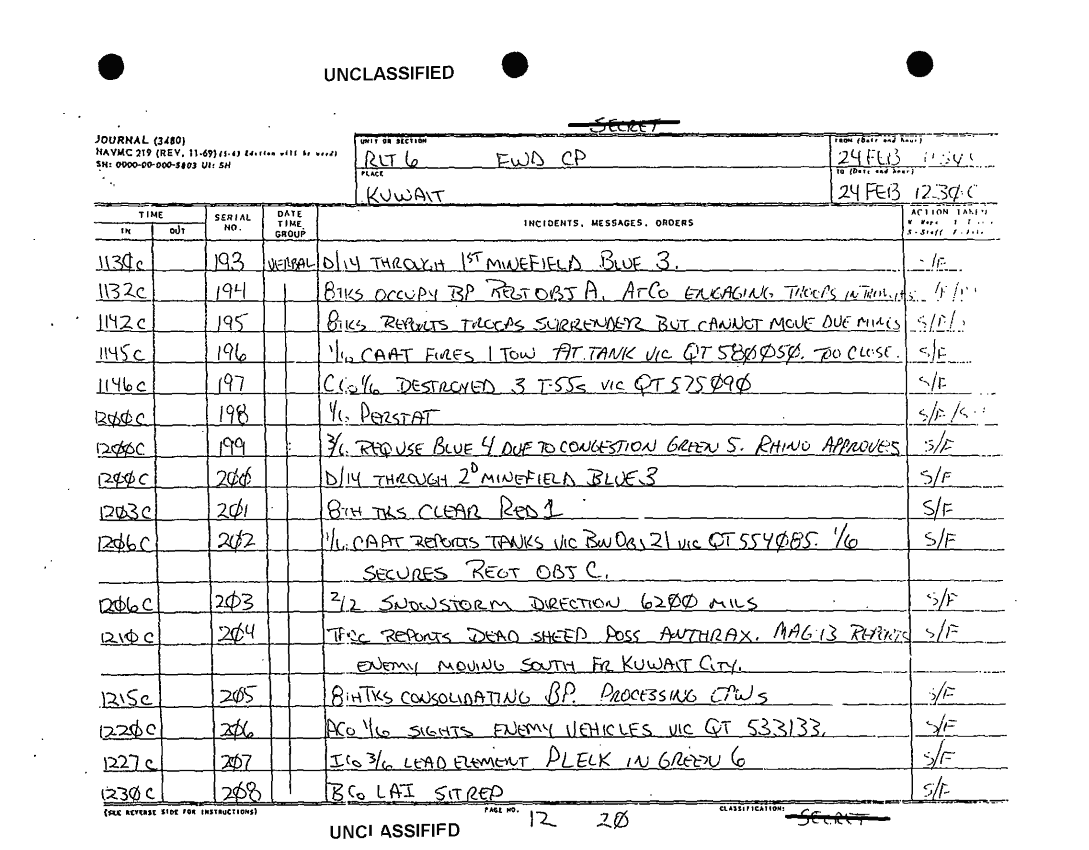 UNCLASSIFIED
SECRET
JOURNAL (3480)
NAVMC 219 (REV. 11-69) (5-63 Edition will be used)
SN: 0000-00-000-5803 UI: SH
UNIT OR SECTION
RLT 6 FWD CP
FROM (Date and hour)
24 FEB
PLACE
KUWAIT
TO (Date and hour)
24 FEB 1230C
TIME
IN OUT
SERIAL NO.
DATE TIME GROUP
INCIDENTS, MESSAGES, ORDERS
ACTION TAKEN
1130C 193 VERBAL D/14 THROUGH 1ST MINEFIELD BLUE 3.
1132C 194 8TKS OCCUPY BP REGT OBJ A. ATCO ENGAGING TROOPS IN
1142C 195 8TKS REPORTS TROOPS SURRENDER BUT CANNOT MOVE DUE MINES S/F/
1145C 196 1/6 CAAT FIRES 1 TOW AT TANK VIC QT 580050. TOO CLOSE. S/F
1146C 197 CCo 1/6 DESTROYED 3 T-55s VIC QT 575090 S/F
1200C 198 1/6 PERSTAT S/F/S
1200C 199 3/6 REQ USE BLUE 4 DUE TO CONGESTION GREEN 5. RHINO APPROVES S/F
1200C 200 D/14 THROUGH 2D MINEFIELD BLUE 3 S/F
1203C 201 8TH TKS CLEAR RED 1 S/F
1206C 202 1/6 CAAT REPORTS TANKS VIC BN OBJ 21 VIC QT 554085. 1/6 S/F
SECURES REGT OBJ C.
1206C 203 2/2 SNOWSTORM DIRECTION 6200 MILS S/F
1210C 204 REPORTS DEAD SHEEP POSS ANTHRAX. MAG 13 REPORTS S/F
ENEMY MOVING SOUTH FR KUWAIT CITY.
1215C 205 8THTKS CONSOLIDATING BP. PROCESSING EPWs S/F
1220C 206 ACo 1/6 SIGHTS ENEMY VEHICLES VIC QT 533133. S/F
1227C 207 ICo 3/6 LEAD ELEMENT PLELK IN GREEN 6 S/F
1230C 208 BCo LAI SITREP S/F
(SEE REVERSE SIDE FOR INSTRUCTIONS)
PAGE NO. 12 20
CLASSIFICATION: SECRET
UNCLASSIFIED